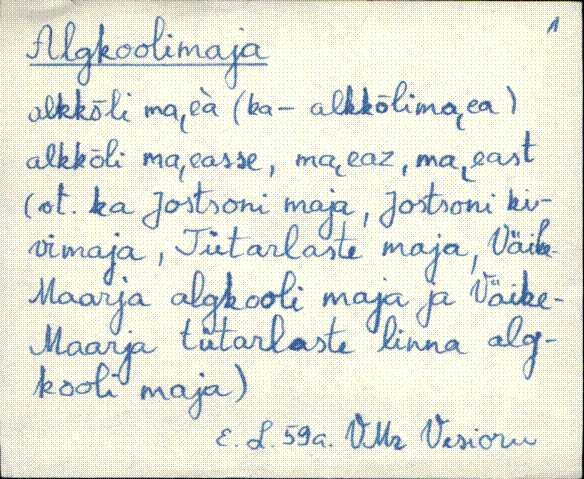 1
Algkoolimaja
alkkōli ma̮eà (ka – alkkōlima̮ea)
alkkōli ma̮easse, ma̮eaz, ma̮east
(vt. ka Jostsoni maja, Jostsoni ki-
vimaja, Tütarlaste maja, Väike-
Maarja algkooli maja ja Väike-
Maarja tütarlaste linna alg-
kooli maja)
E. L. 59a. VMr Vesioru